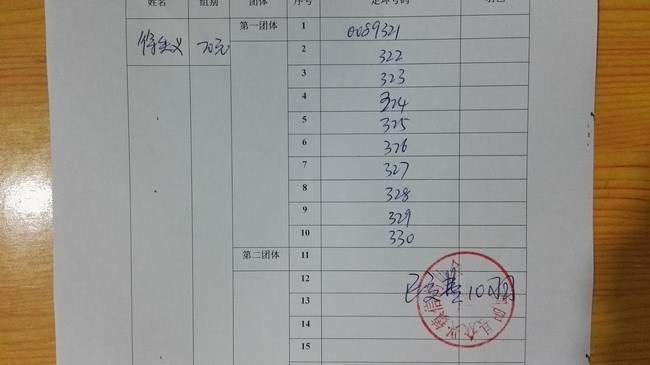 姓名 组别 团体 序号 足环号码 羽色
70元 第一团体 1 0089321
2 322
3 323
4 324
5 325
6 326
7 327
8 328
9 329
10 330
第二团体 11
12
13
14
15